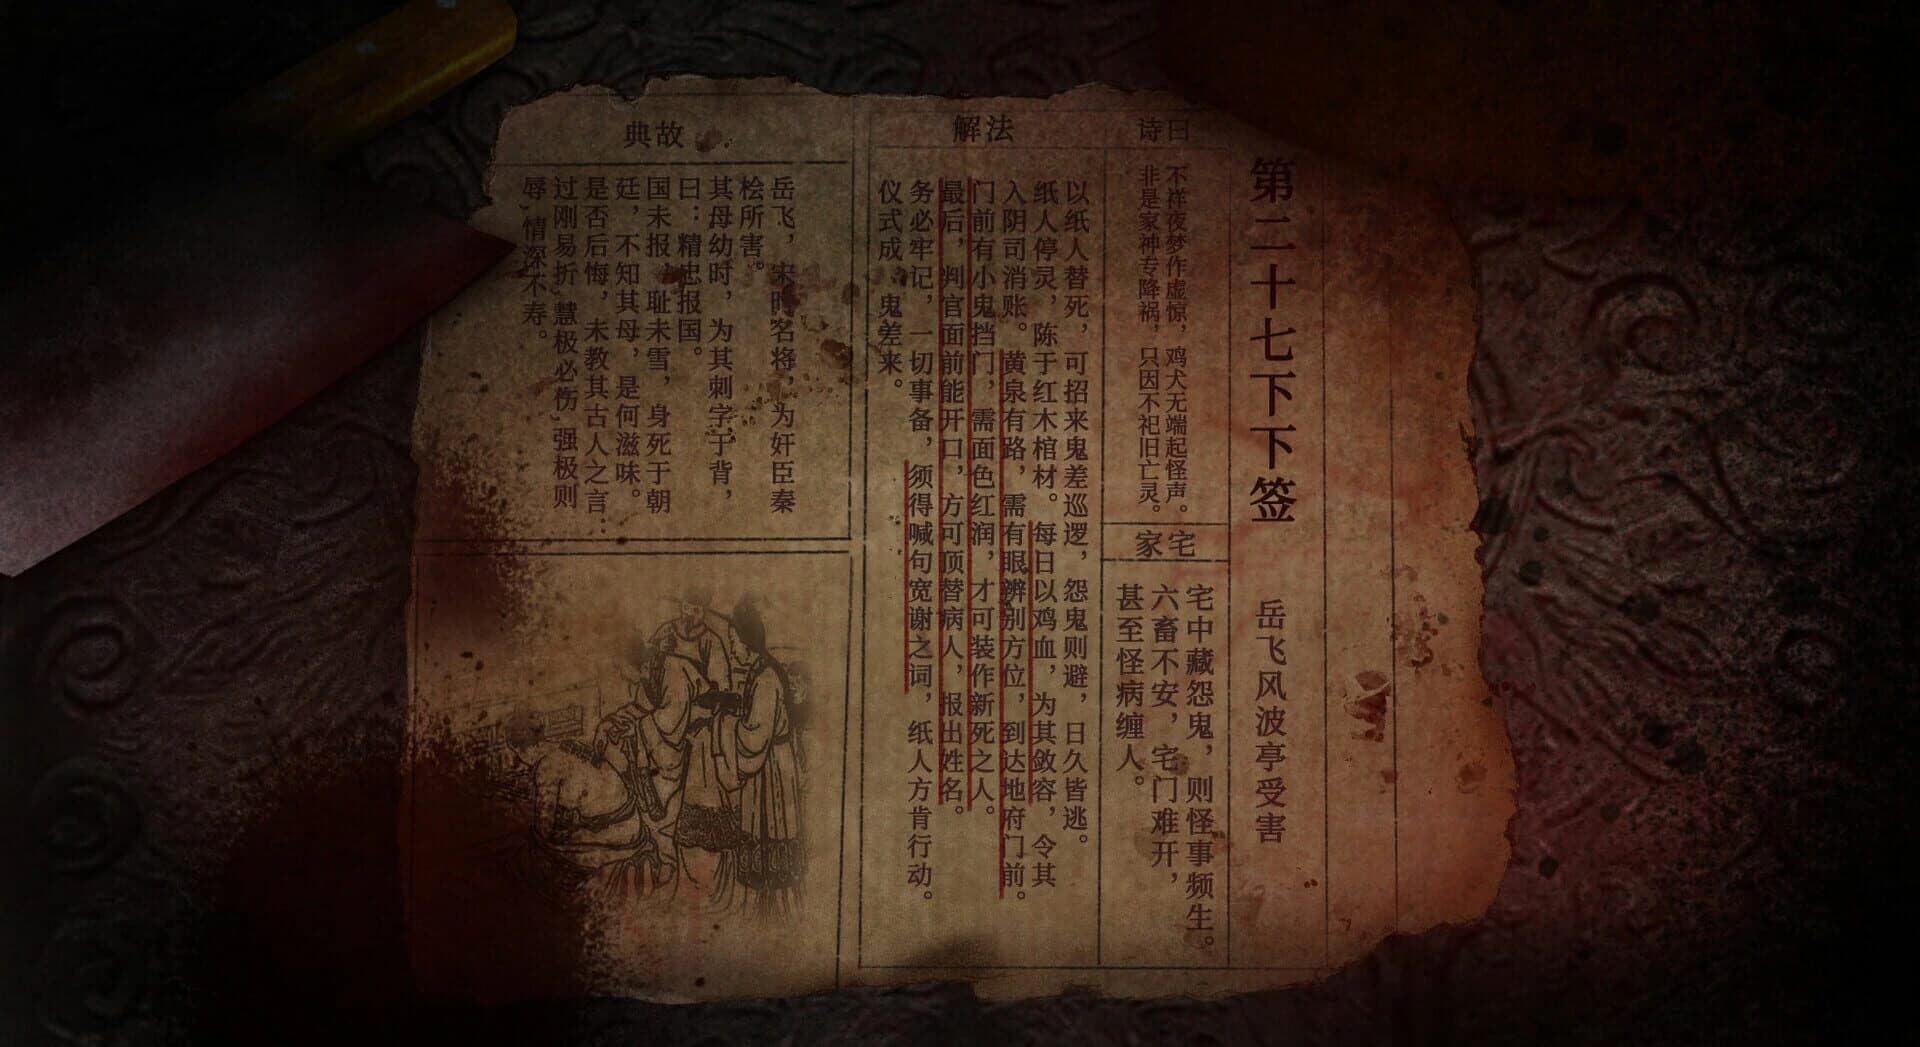 第二十七下下签 岳飞风波亭受害
诗曰
不祥夜梦作虚惊，鸡犬无端起怪声。
非是家神专降祸，只因不祀旧亡灵。
家宅
宅中藏怨鬼，则怪事频生。
六畜不安，宅门难开，
甚至怪病缠人。
解法
以纸人替死，可招来鬼差巡逻，怨鬼则避，日久皆逃。
纸人停灵，陈于红木棺材。每日以鸡血，为其敛容，令其
入阴司消账。黄泉有路，需有眼辨别方位，到达地府门前。
门前有小鬼挡门，需面色红润，才可装作新死之人。
最后，判官面前能开口，方可顶替病人，报出姓名。
务必牢记，一切事备，须得喊句宽谢之词，纸人方肯行动。
仪式成，鬼差来。
典故
岳飞，宋时名将，为奸臣秦
桧所害。
其母幼时，为其刺字于背，
曰：精忠报国。
国未报，耻未雪，身死于朝
廷，不知其母，是何滋味。
是否后悔，未教其古人之言：
过刚易折，慧极必伤，强极则
辱，情深不寿。